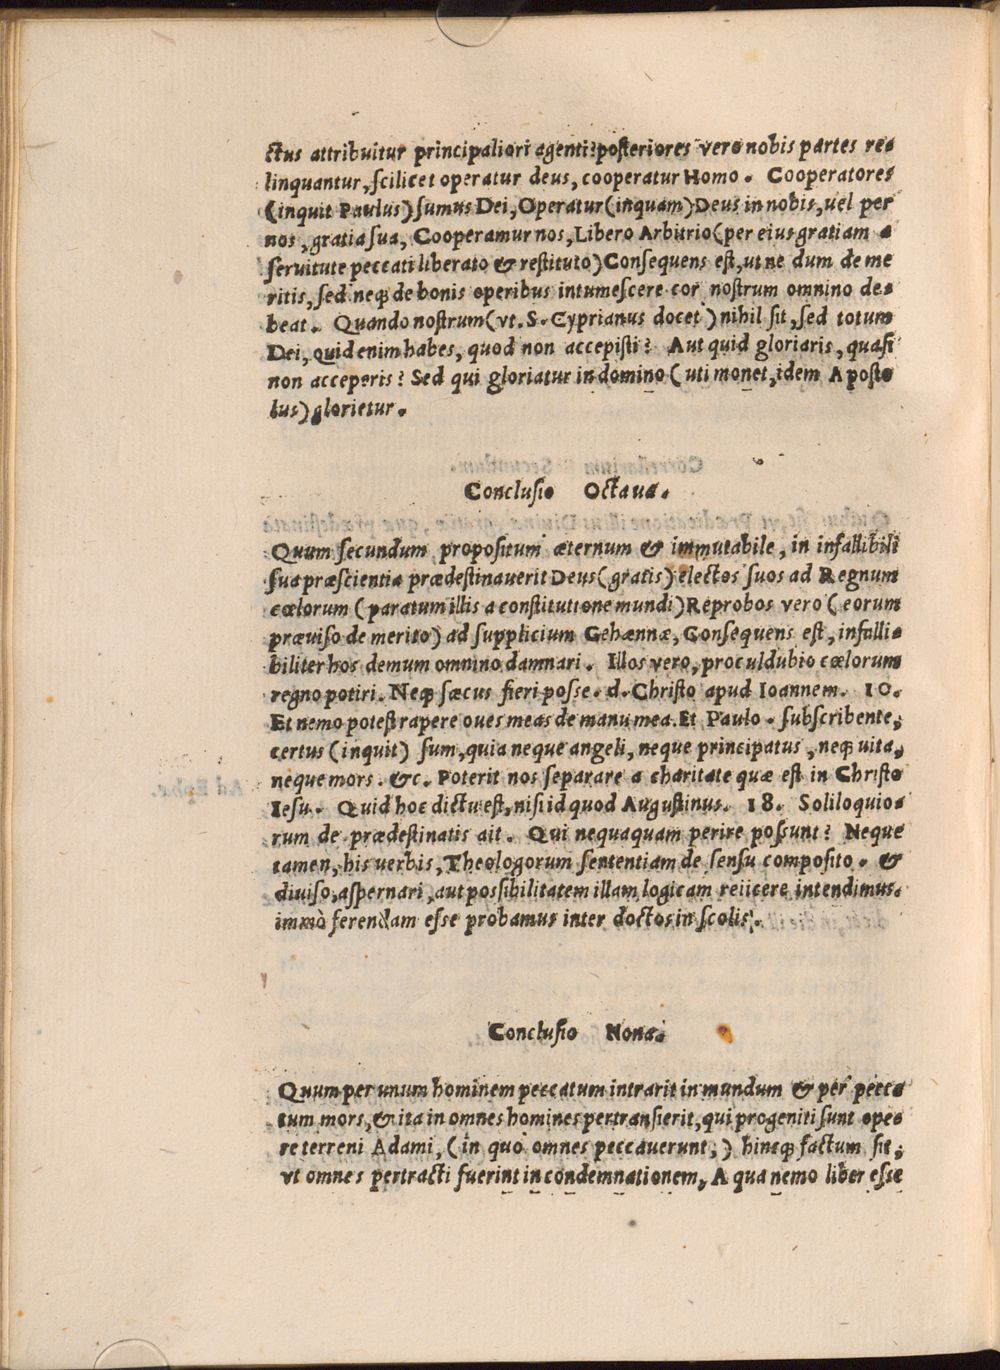 ctus attribuitur principaliori agenti? posteriores vero nobis partes re-
linquantur, scilicet operatur deus, cooperatur Homo. Cooperatores
(inquit Paulus) sumus Dei, Operatur (inquam) Deus in nobis, uel per
nos, gratia sua, Cooperamur nos, Libero Arbitrio (per eius gratiam a
seruitute peccati liberato & restituto) Consequens est, ut ne dum de me
ritis, sed neq; de bonis operibus intumescere cor nostrum omnino de-
beat. Quando nostrum (vt. S. Cyprianus docet) nihil sit, sed totum
Dei, quid enim habes, quod non accepisti? Aut quid gloriaris, quasi
non acceperis? Sed qui gloriatur in domino (uti monet, idem Aposto
lus) glorietur.
Conclusio Octaua.
Quum secundum propositum æternum & immutabile, in infallibili
sua præscientia prædestinauerit Deus (gratis) electos suos ad Regnum
cœlorum (paratum illis a constitutione mundi) Reprobos vero (eorum
præuiso de merito) ad supplicium Gehænnæ, Consequens est, infalli-
biliter hos demum omnino damnari. Illos vero, proculdubio cœlorum
regno potiri. Neq; sæcus fieri posse. d. Christo apud Ioannem. 10.
Et nemo potest rapere oues meas de manu mea. Et Paulo. subscribente,
certus (inquit) sum, quia neque angeli, neque principatus, neq; uita,
neque mors. &c. Poterit nos separare a charitate quæ est in Christo
Iesu. Quid hoc dictu est, nisi id quod Augustinus. 18. Soliloquio-
rum de prædestinatis ait. Qui nequaquam perire possunt? Neque
tamen, his uerbis, Theologorum sententiam de sensu composito. &
diuiso, aspernari, aut possibilitatem illam logicam reiicere intendimus.
immò ferendam esse probamus inter doctos in scolis.
Conclusio Nona.
Quum per unum hominem peccatum intrarit in mundum & per pecca
tum mors, & ita in omnes homines pertransierit, qui progeniti sunt ope-
re terreni Adami, (in quo omnes peccauerunt,) hincq; factum sit,
vt omnes pertracti fuerint in condemnationem, A qua nemo liber esse